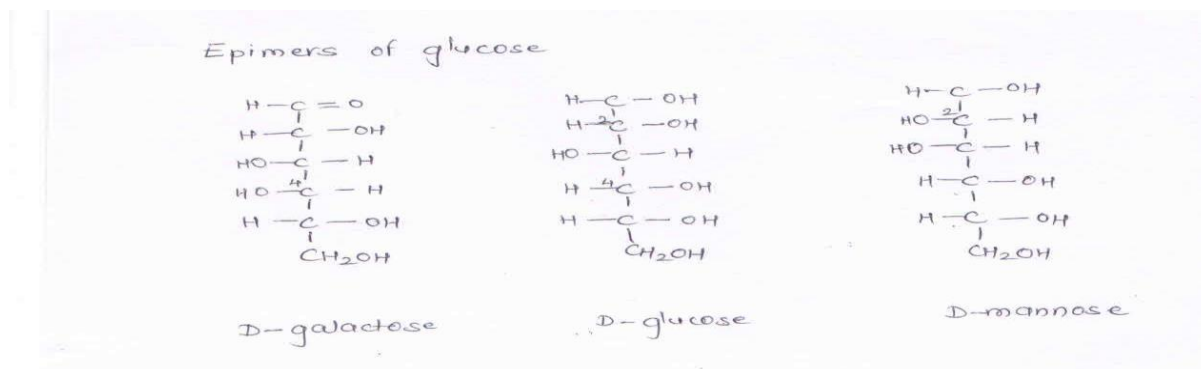 Epimers of glucose
H-C=O
H-C-OH
HO-C-H
HO-4C-H
H-C-OH
CH2OH
D-galactose
H-C-OH
H-2C-OH
HO-C-H
H-4C-OH
H-C-OH
CH2OH
D-glucose
H-C-OH
HO-2C-H
HO-C-H
H-C-OH
H-C-OH
CH2OH
D-mannose